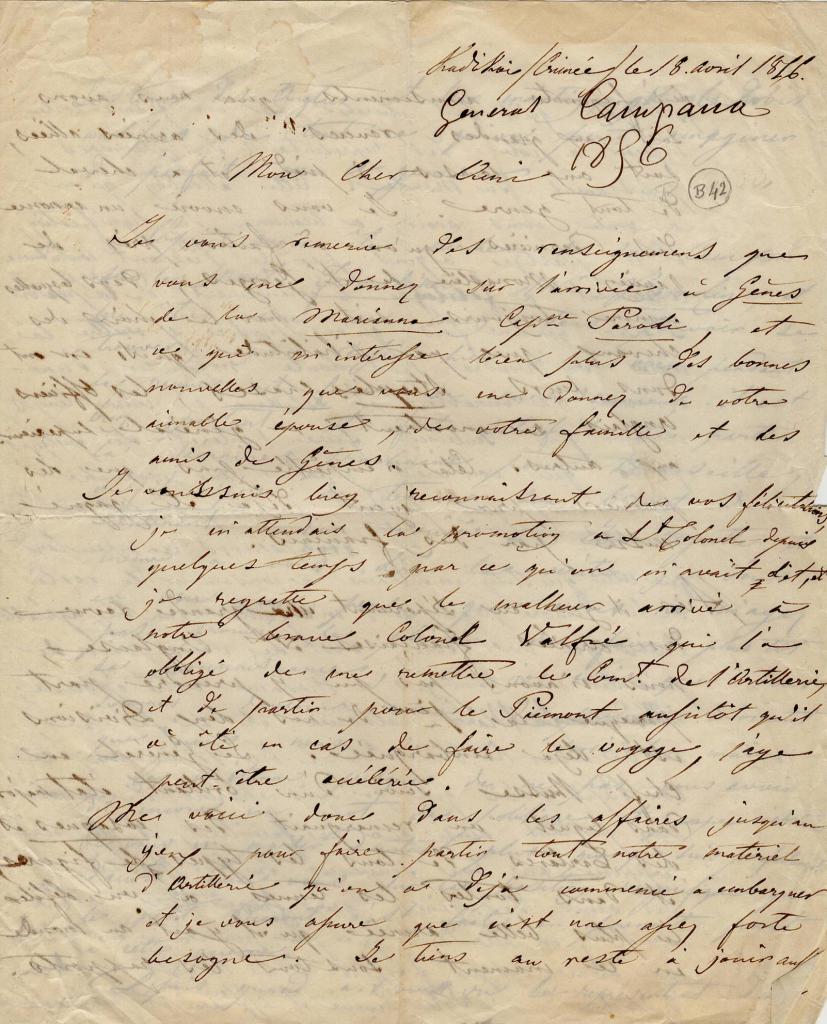 Kadikoi (Crimée) le 18. avril 1856.
General Campana
1856
B 42
Mon Cher Ami
Je vous remercie des renseignemens que
vous me donnez sur l'arrivée à Gênes
de la Marianna Capne Parodi, et
ce que m'intéresse bien plus des bonnes
nouvelles que vous me donnez de votre
aimable épouse, de votre famille et des
amis de Gênes.
Je vous suis bien reconnaissant de vos félicitations,
je m'attendais la promotion a Lt Colonel depuis
quelques temps par ce qu'on m'avait dit, et
je regrette que le malheur arrivé à
notre brave Colonel Valfré qui l'a
obbligé de me remettre le Comt. de l'Artillerie
et de partir pour le Piémont aussitôt qu'il
a été en cas de faire le voyage, l'aye
peut-être accélérée.
Me voici donc dans les affaires jusqu'au
yeux pour faire partir tout notre matériel
d'Artillerie qu'on a déjà commencé à embarquer
et je vous assure que c'est une assez forte
besogne. Je tiens au reste à jouir